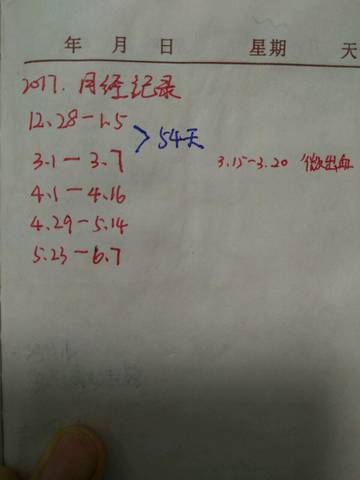 年 月 日 星期 天
2017. 月经记录
12.28-1.5
54天
3.1-3.7
3.15-3.20 微出血
4.1-4.16
4.29-5.14
5.23-6.7